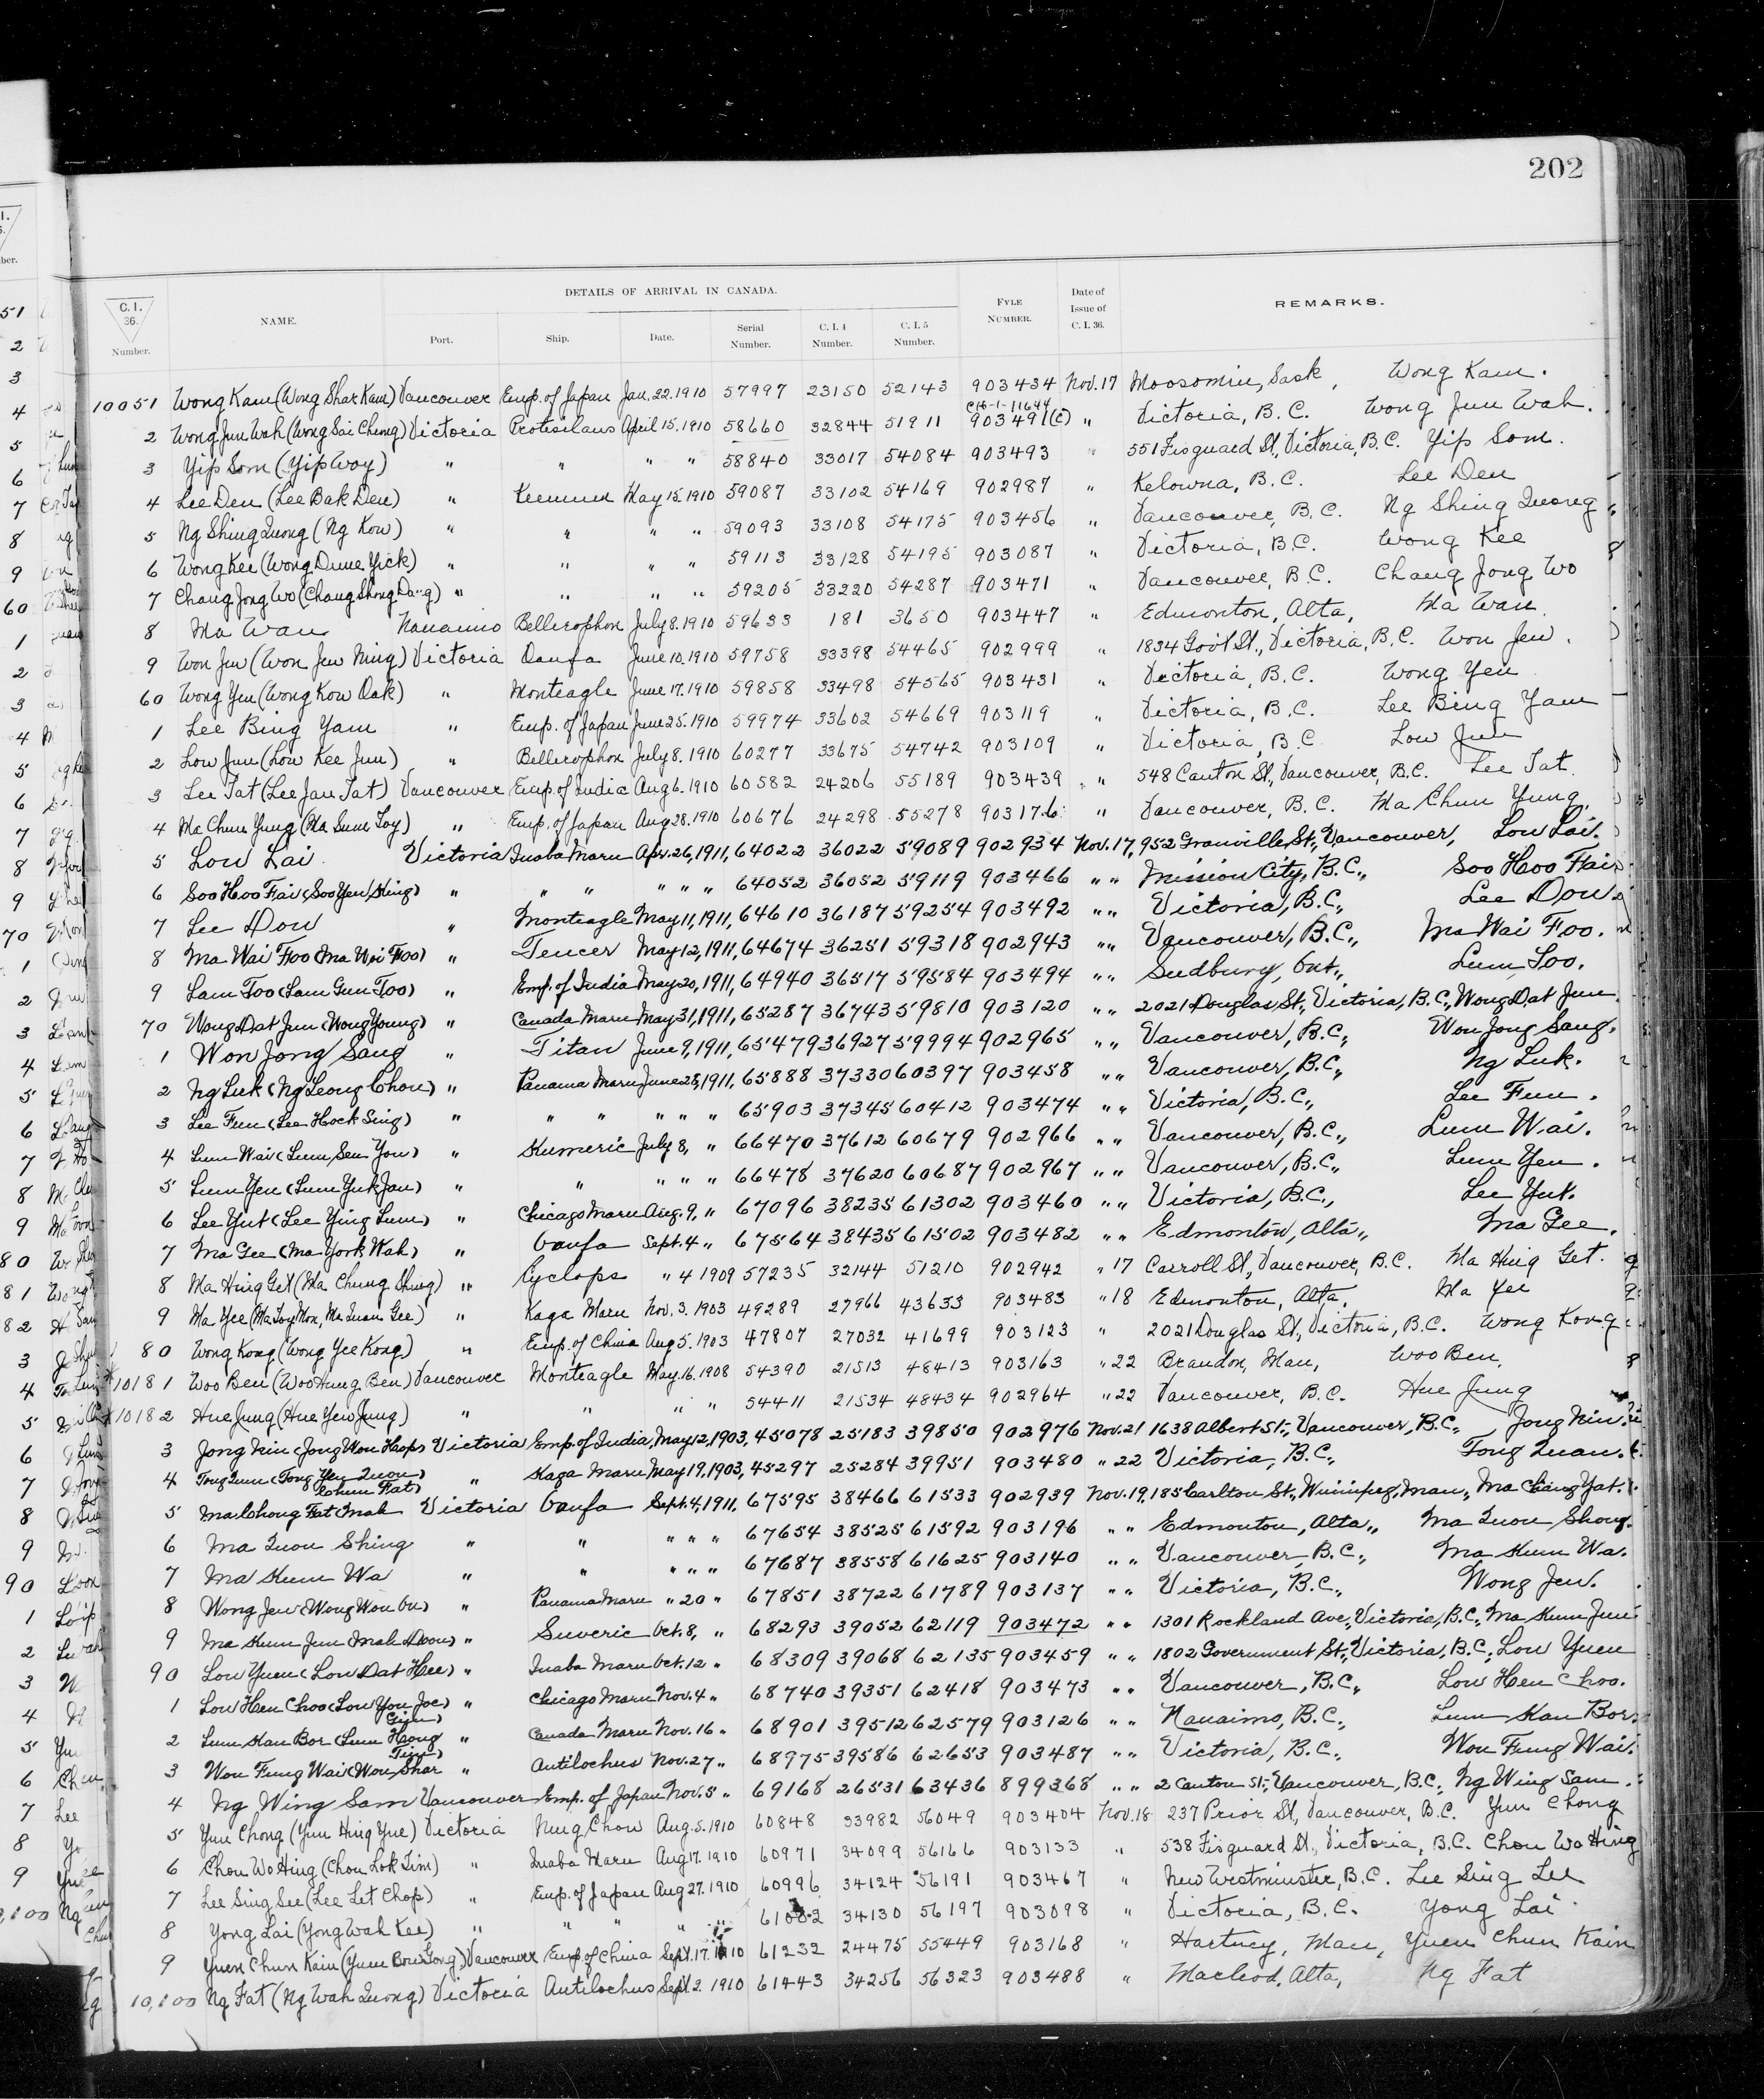 202
DETAILS OF ARRIVAL IN CANADA.
C.I. 36. Number. NAME. Port. Ship. Date. Serial Number. C.I.4 Number. C.I.5 Number. FYLE NUMBER. Date of Issue of C.I.36. REMARKS.
10051 Wong Kam (Wong Shar Kam) Vancouver Emp. of Japan Jan. 22. 1910 57997 23150 52143 903434 Nov. 17 Moosomin, Sask, Wong Kam.
2 Wong Jun Wah (Wong Sai Cheong) Victoria Protesilaus April 15. 1910 58660 32844 51911 903491(C) " Victoria, B.C. Wong Jun Wah.
3 Yip Som (Yip Woy) " " " " 58840 33017 54084 903493 " 551 Fisguard St, Victoria, B.C. Yip Som.
4 Lee Den (Lee Bak Den) " Keemun May 15. 1910 59087 33102 54169 902987 " Kelowna, B.C. Lee Den
5 Ng Shing Quong (Ng Kow) " " " " 59093 33108 54175 903456 " Vancouver, B.C. Ng Shing Quong
6 Wong Kee (Wong Dune Yick) " " " " 59113 33128 54195 903087 " Victoria, B.C. Wong Kee
7 Chang Jong Wo (Chang Shong Dang) " " " " 59205 33220 54287 903471 " Vancouver, B.C. Chang Jong Wo
8 Ma Wan Nanaimo Bellerophon July 8. 1910 59633 181 3650 903447 " Edmonton, Alta, Ma Wan.
9 Won Jew (Won Jew Ning) Victoria Oanfa June 10. 1910 59758 33398 54465 902999 " 1834 Gov't St., Victoria, B.C. Won Jew.
60 Wong Yen (Wong Kow Oak) " Monteagle June 17. 1910 59858 33498 54565 903431 " Victoria, B.C. Wong Yen
1 Lee Bing Yam " Emp. of Japan June 25. 1910 59974 33602 54669 903119 " Victoria, B.C. Lee Bing Yam
2 Low Jun (Low Kee Jun) " Bellerophon July 8. 1910 60277 33675 54742 903109 " Victoria, B.C Low Jun
3 Lee Tat (Lee Jan Tat) Vancouver Emp. of India Aug 6. 1910 60582 24206 55189 903439 " 548 Canton St., Vancouver, B.C. Lee Tat.
4 Ma Chun Yung (Ma Sum Toy) " Emp. of Japan Aug 28. 1910 60676 24298 55278 903176 " Vancouver, B.C. Ma Chun Yung.
5 Low Lai. Victoria Inaba Maru Apr. 26, 1911, 64022 36022 59089 902934 Nov. 17, 952 Granville St., Vancouver, Low Lai.
6 Soo Hoo Fai (Soo Yen Hing) " " " " " " 64052 36052 59119 903466 " " Mission City, B.C., Soo Hoo Fai
7 Lee Dow " Monteagle May 11, 1911, 64610 36187 59254 903492 " " Victoria, B.C., Lee Dow
8 Ma Wai Foo (Ma Wai Foo) " Teucer May 12, 1911, 64674 36251 59318 902943 " " Vancouver, B.C., Ma Wai Foo.
9 Lam Too (Lam Gun Too) " Emp. of India May 20, 1911, 64940 36517 59584 903494 " " Sudbury, Ont., Lum Too.
70 Wong Dat Jun (Wong Young) " Canada Maru May 31, 1911, 65287 36743 59810 903120 " " 2021 Douglas St., Victoria, B.C., Wong Dat Jun.
1 Won Jong Sang " Titan June 9, 1911, 65479 36927 59994 902965 " " Vancouver, B.C., Won Jong Sang.
2 Ng Luk (Ng Leong Chou) " Panama Maru June 28, 1911, 65888 37330 60397 903458 " " Vancouver, B.C., Ng Luk.
3 Lee Fun (Lee Hock Sing) " " " " " " 65903 37345 60412 903474 " " Victoria, B.C., Lee Fun.
4 Lum Wai (Lum Sen You) " Kumeric July 8, " 66470 37612 60679 902966 " " Vancouver, B.C., Lum Wai.
5 Lum Yen (Lum Yuk Jan) " " " " " 66478 37620 60687 902967 " " Vancouver, B.C., Lum Yen.
6 Lee Yut (Lee Ying Lum) " Chicago Maru Aug. 9, " 67096 38235 61302 903460 " " Victoria, B.C., Lee Yut.
7 Ma Gee (Ma York Wah) " Oanfa Sept. 4 " 67564 38435 61502 903482 " " Edmonton, Alta., Ma Gee.
8 Ma Hing Get (Ma Chung Shung) " Cyclops " 4 1909 57235 32144 51210 902942 " 17 Carroll St., Vancouver, B.C. Ma Hing Get.
9 Ma Yee (Ma Toy Mon, Ma Suan Gee) " Kaga Maru Nov. 3. 1903 49289 27966 43633 903483 " 18 Edmonton, Alta. Ma Yee
80 Wong Kong (Wong Yee Kong) " Emp. of China Aug 5. 1903 47807 27032 41699 903123 " 2021 Douglas St., Victoria, B.C. Wong Kong
10181 Woo Ben (Woo Hung Ben) Vancouver Monteagle May. 16. 1908 54390 21513 48413 903163 " 22 Brandon, Man, Woo Ben.
10182 Hue Jung (Hue Yew Jung) " " " " 54411 21534 48434 902964 " 22 Vancouver, B.C. Hue Jung
3 Jong Nin (Jong Won Haop) Victoria Emp. of India, May 12, 1903, 45078 25183 39850 902976 Nov. 21 1638 Albert St., Vancouver, B.C., Jong Nin.
4 Tong Quan (Tong Yen Quon) " Kaga Maru May 19, 1903, 45297 25284 39951 903480 " 22 Victoria, B.C., Tong Quan.
5 Ma Chong Fat (Mah Chun Fat) Victoria Oanfa Sept. 4, 1911, 67595 38466 61533 902939 Nov. 19, 185 Carlton St., Winnipeg, Man., Ma Chong Fat.
6 Ma Quon Shing " " " " " 67654 38525 61592 903196 " " Edmonton, Alta., Ma Quon Shong.
7 Ma Kum Wa " " " " " 67687 38558 61625 903140 " " Vancouver, B.C., Ma Kum Wa.
8 Wong Jew (Wong Won On) " Panama Maru " 20 " 67851 38722 61789 903137 " " Victoria, B.C., Wong Jew.
9 Ma Kum Jun (Mah Doon) " Suveric Oct. 8, " 68293 39052 62119 903472 " " 1301 Rockland Ave., Victoria, B.C., Ma Kum Jun.
90 Low Yuen (Low Dat Hee) " Inaba Maru Oct. 12 " 68309 39068 62135 903459 " " 1802 Government St., Victoria, B.C., Low Yuen
1 Low Hen Choo (Low You Joe) " Chicago Maru Nov. 4 " 68740 39351 62418 903473 " " Vancouver, B.C., Low Hen Choo.
2 Lum Kan Bor (Lum Haong Gim) " Canada Maru Nov. 16 " 68901 39512 62579 903126 " " Nanaimo, B.C., Lum Kan Bor.
3 Won Fung Wai (Won Shar Tim) " Antilochus Nov. 27 " 68975 39586 62653 903487 " " Victoria, B.C., Won Fung Wai.
4 Ng Wing Sam Vancouver Emp. of Japan Nov. 5 " 69168 26531 63436 899368 " " 2 Canton St., Vancouver, B.C., Ng Wing Sam.
5 Yun Chong (Yun Hing Yue) Victoria Ning Chow Aug. 5. 1910 60848 33982 56049 903404 Nov. 18 237 Prior St., Vancouver, B.C. Yun Chong
6 Chou Wo Hing (Chou Lok Tim) " Inaba Maru Aug 17. 1910 60971 34099 56166 903133 " 538 Fisguard St., Victoria, B.C. Chou Wo Hing
7 Lee Sing See (Lee Let Chop) " Emp. of Japan Aug 27. 1910 60996 34124 56191 903467 " New Westminster, B.C. Lee Sing Lee
8 Yong Lai (Yong Wah Kee) " " " " " 34130 56197 903098 " Victoria, B.C. Yong Lai
9 Yuen Chun Kain (Yuen Bow Gong) Vancouver Emp. of China Sept. 17. 1910 61232 24475 55449 903168 " Hartney, Man, Yuen Chun Kain
10,100 Ng Fat (Ng Wah Quong) Victoria Antilochus Sept. 2. 1910 61443 34256 56323 903488 " Macleod, Alta, Ng Fat